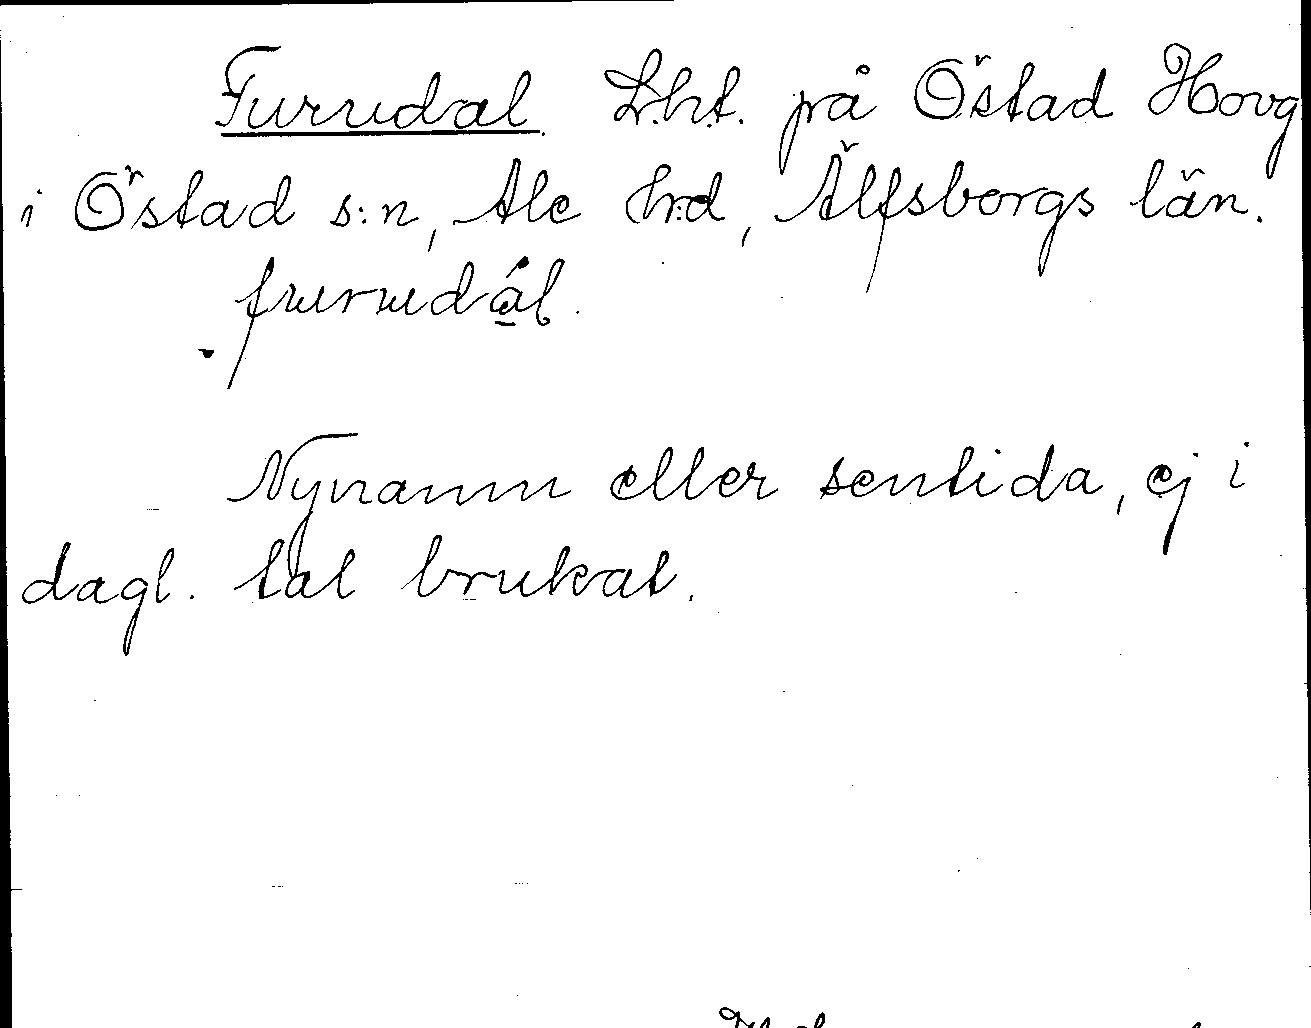 Furudal. L:ht. på Östad Hovg
i Östad s:n, Ale h:d, Älfsborgs län.
furudál.
Nynamn eller sentida, ej i
dagl. tal brukat.